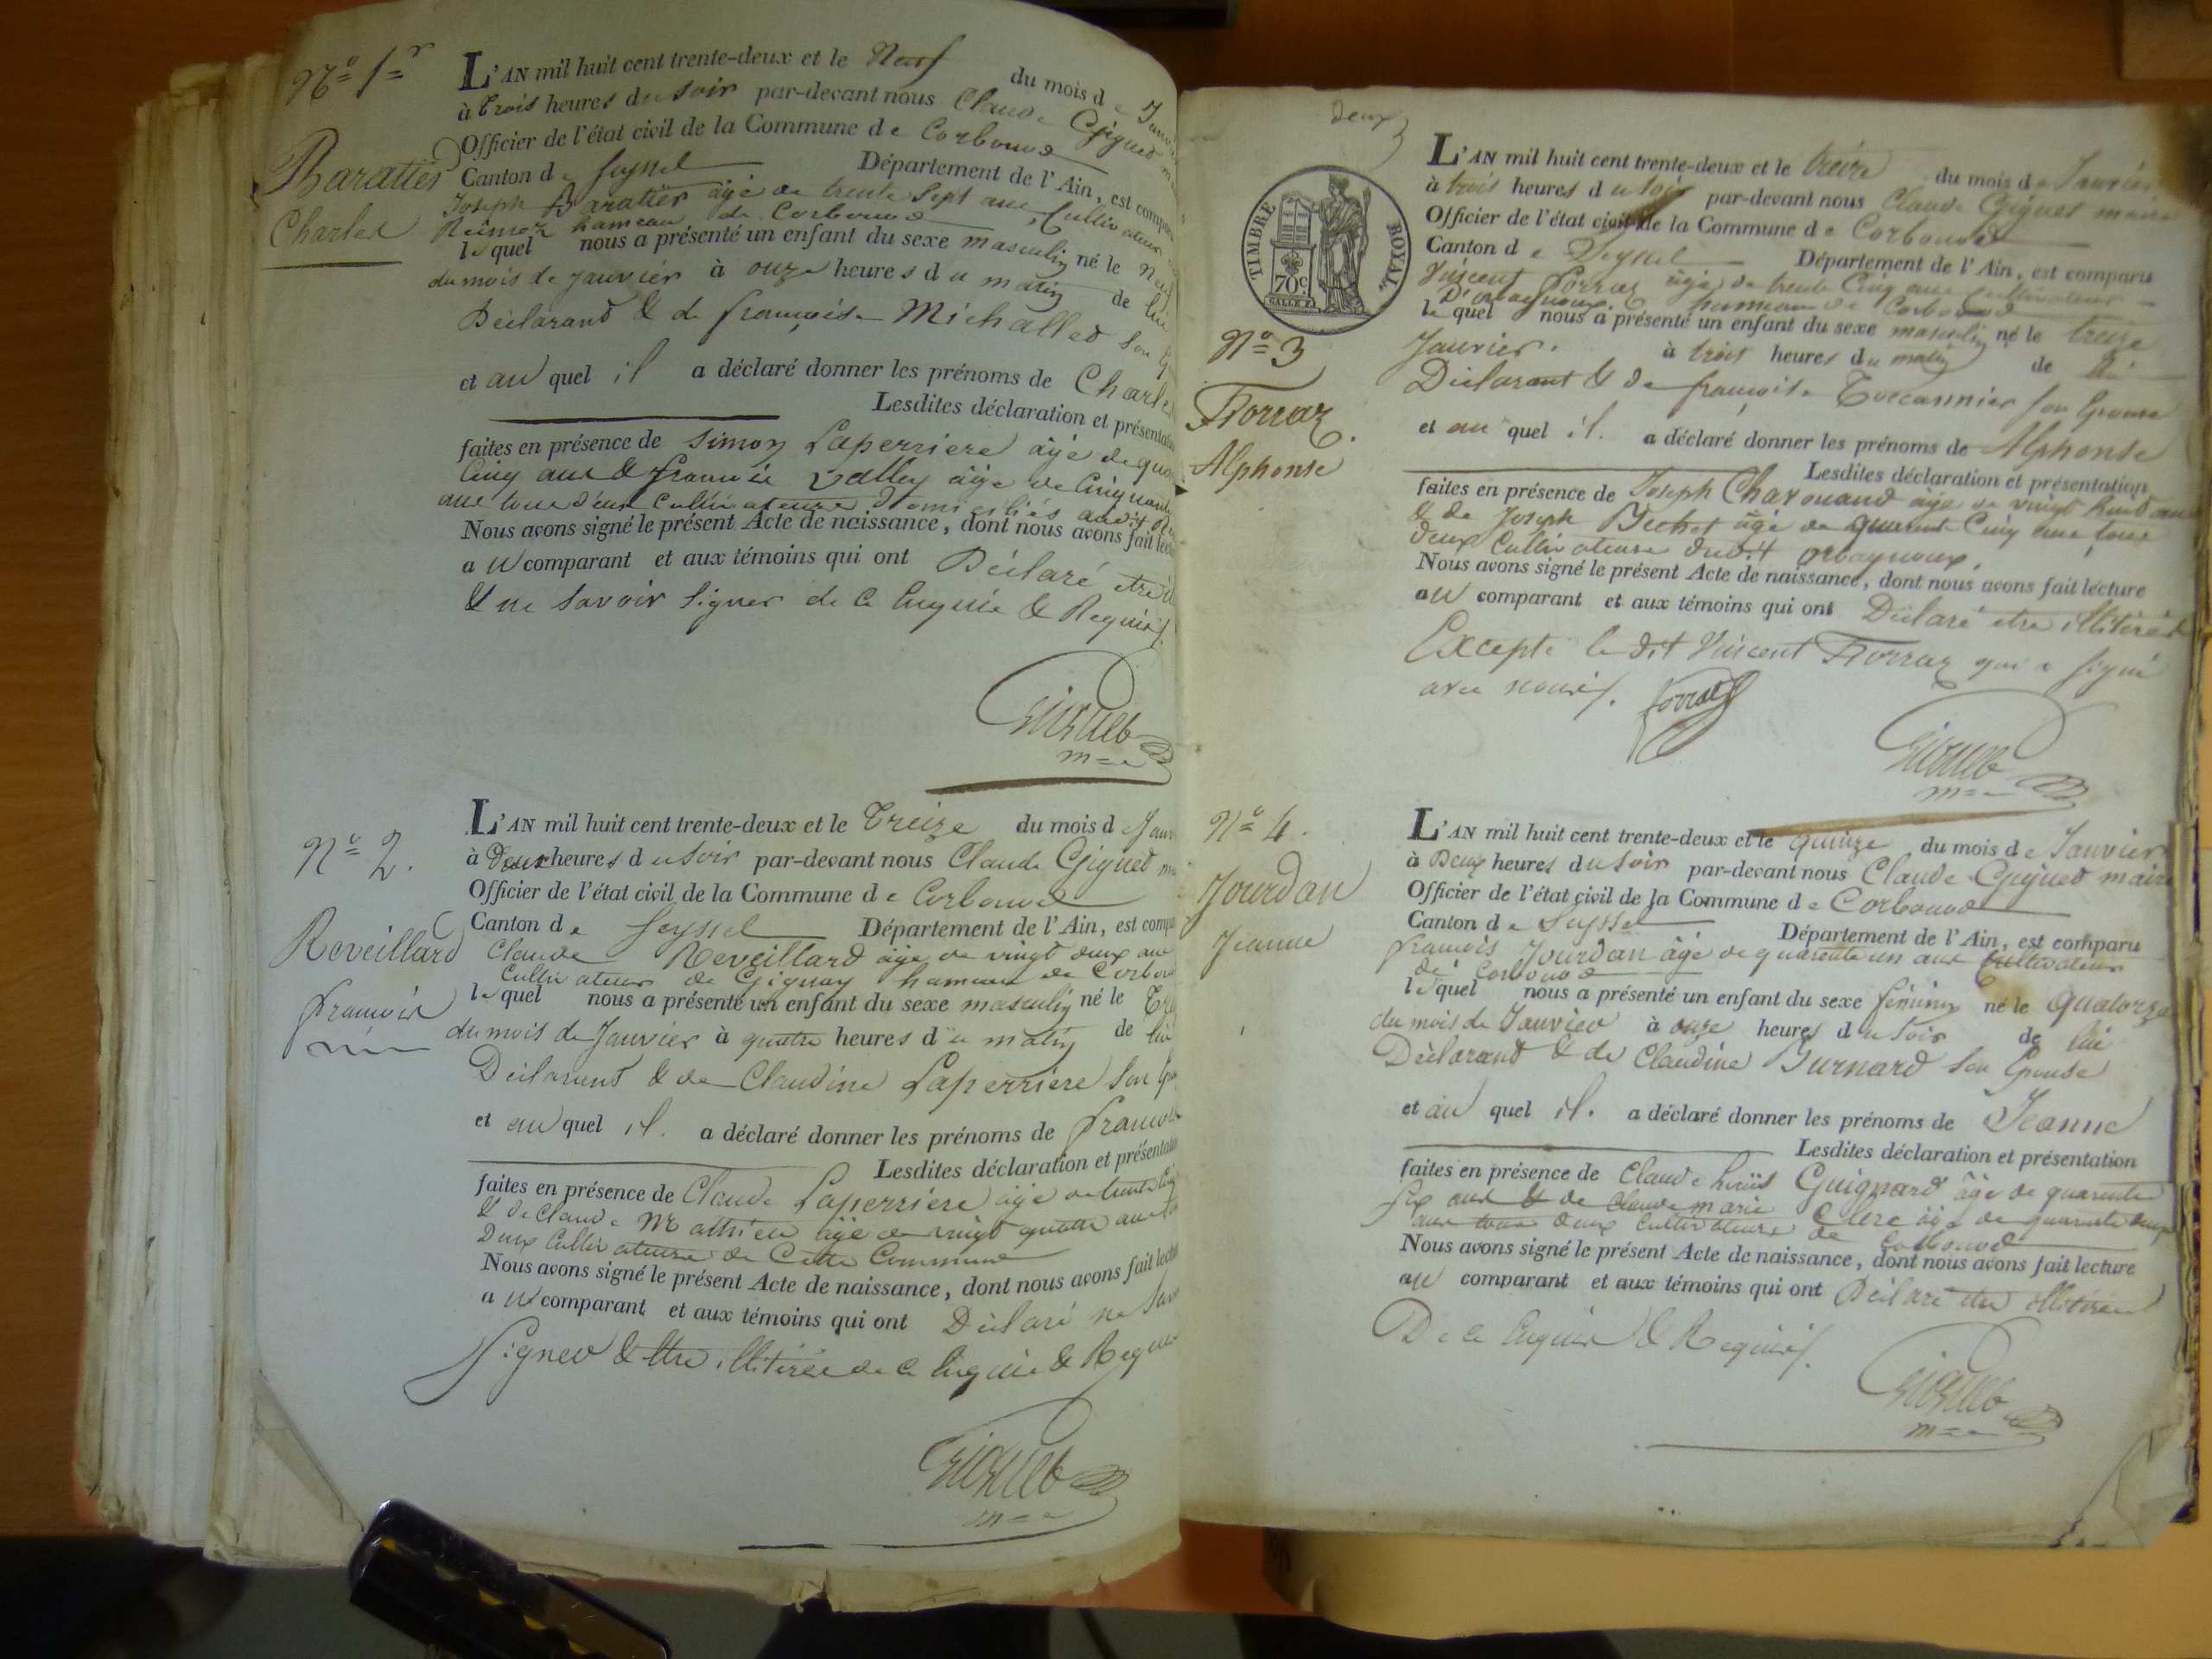 Nº 1er
Baratier
Charles
L'AN mil huit cent trente-deux et le Neuf du mois de
à trois heures du soir par-devant nous Claude Giguet
Officier de l'état civil de la Commune de Corbonod
Canton de Seyssel Département de l'Ain, est
Joseph Baratier âgé de trente sept ans Cultivateur
hameau de Corbonod
lequel nous a présenté un enfant du sexe masculin né le
du mois de janvier à onze heures du matin de lui
Déclarand & de françoise Michallet son
et au quel il a déclaré donner les prénoms de Charles
Lesdites déclaration et
faites en présence de Simon Laperriere âgé de
Cinq ans & françois Valley âgé de Cinquante
ans tous deux Cultivateurs Domiciliés audit
Nous avons signé le présent Acte de naissance, dont nous avons fait
au comparant et aux témoins qui ont Déclaré etre
& ne savoir signer de ce Enquis & Requis.
Giguet
m=e
Nº 2.
Reveillard
françois
L'AN mil huit cent trente-deux et le Treize du mois de
à Deux heures du soir par-devant nous Claude Giguet
Officier de l'état civil de la Commune de Corbonod
Canton de Seyssel Département de l'Ain, est
Claude Reveillard âgé de vingt deux ans
Cultivateur de Gignay hameau de
lequel nous a présenté un enfant du sexe masculin né le
du mois de Janvier à quatre heures du matin de lui
Déclarant & de Claudine Laperriere son
et au quel il. a déclaré donner les prénoms de françois
Lesdites déclaration et
faites en présence de Claude Laperriere âgé de trente
& de Claude Mathieu âgé de vingt quatre ans
Deux Cultivateurs de Cette Commune
Nous avons signé le présent Acte de naissance, dont nous avons fait
au comparant et aux témoins qui ont Déclaré ne
Signer & Etre illitérés de ce Enquis & Requis
Giguet
m=e
Deux
TIMBRE ROYAL.
70c.
Nº 3
Forraz.
Alphonse
L'AN mil huit cent trente-deux et le treize du mois de Janvier
à trois heures du soir par-devant nous Claude Giguet maire
Officier de l'état civil de la Commune de Corbonod
Canton de Seyssel Département de l'Ain, est comparu
Vincent Forraz âgé de trente Cinq ans Cultivateur
D'orbagnoux hameau de Corbonod
lequel nous a présenté un enfant du sexe masculin né le treize
Janvier. à trois heures du matin de lui
Déclarant & de françoise Toccannier son Epouse
et au quel il. a déclaré donner les prénoms de Alphonse
Lesdites déclaration et présentation
faites en présence de Joseph Charouand âgé de vingt huit ans
& de Joseph Bechet âgé de quarant Cinq ans tous
deux Cultivateurs dudit orbagnoux.
Nous avons signé le présent Acte de naissance, dont nous avons fait lecture
au comparant et aux témoins qui ont Déclaré etre illitérés
Excepté le dit Vincent Forraz qui a signé
avec nous.
forraz
Giguet
m=e
Nº 4.
Jourdan
Jeanne
L'AN mil huit cent trente-deux et le quinze du mois de Janvier
à Deux heures du soir par-devant nous Claude Giguet maire
Officier de l'état civil de la Commune de Corbonod
Canton de Seyssel Département de l'Ain, est comparu
françois Jourdan âgé de quarente un ans Cultivateur
de Corbonod
lequel nous a présenté un enfant du sexe féminin né le quatorze
du mois de Janvier à onze heures du soir de lui
Déclarand & de Claudine Burnard son Epouse
et au quel il. a déclaré donner les prénoms de Jeanne
Lesdites déclaration et présentation
faites en présence de Claude Louis Guignard âgé de quarente
six ans & de Claude marie Clerc âgé de quarente deux
ans tous deux Cultivateurs de Corbonod
Nous avons signé le présent Acte de naissance, dont nous avons fait lecture
au comparant et aux témoins qui ont Déclaré etre illitérés
De ce Enquis & Requis.
Giguet
m=e